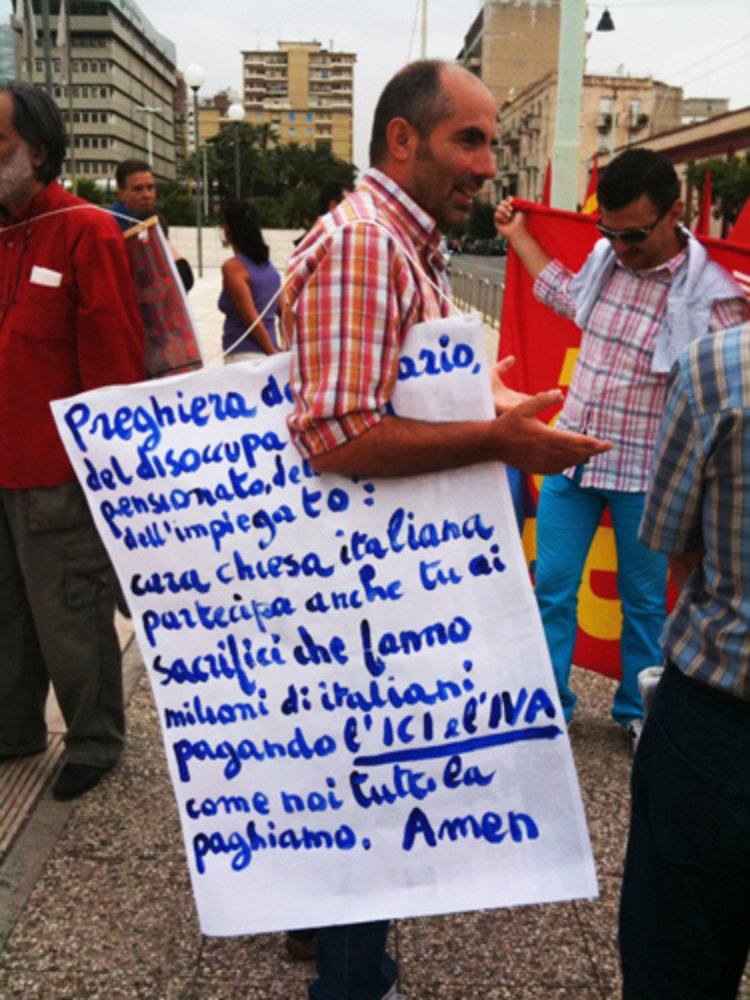 Preghiera ario,
del disoccupa
pensionato, del
dell'impiegato:
cara chiesa italiana
partecipa anche tu ai
sacrifici che fanno
milioni di italiani
pagando l'ICI e l'IVA
come noi tutti la
paghiamo. Amen